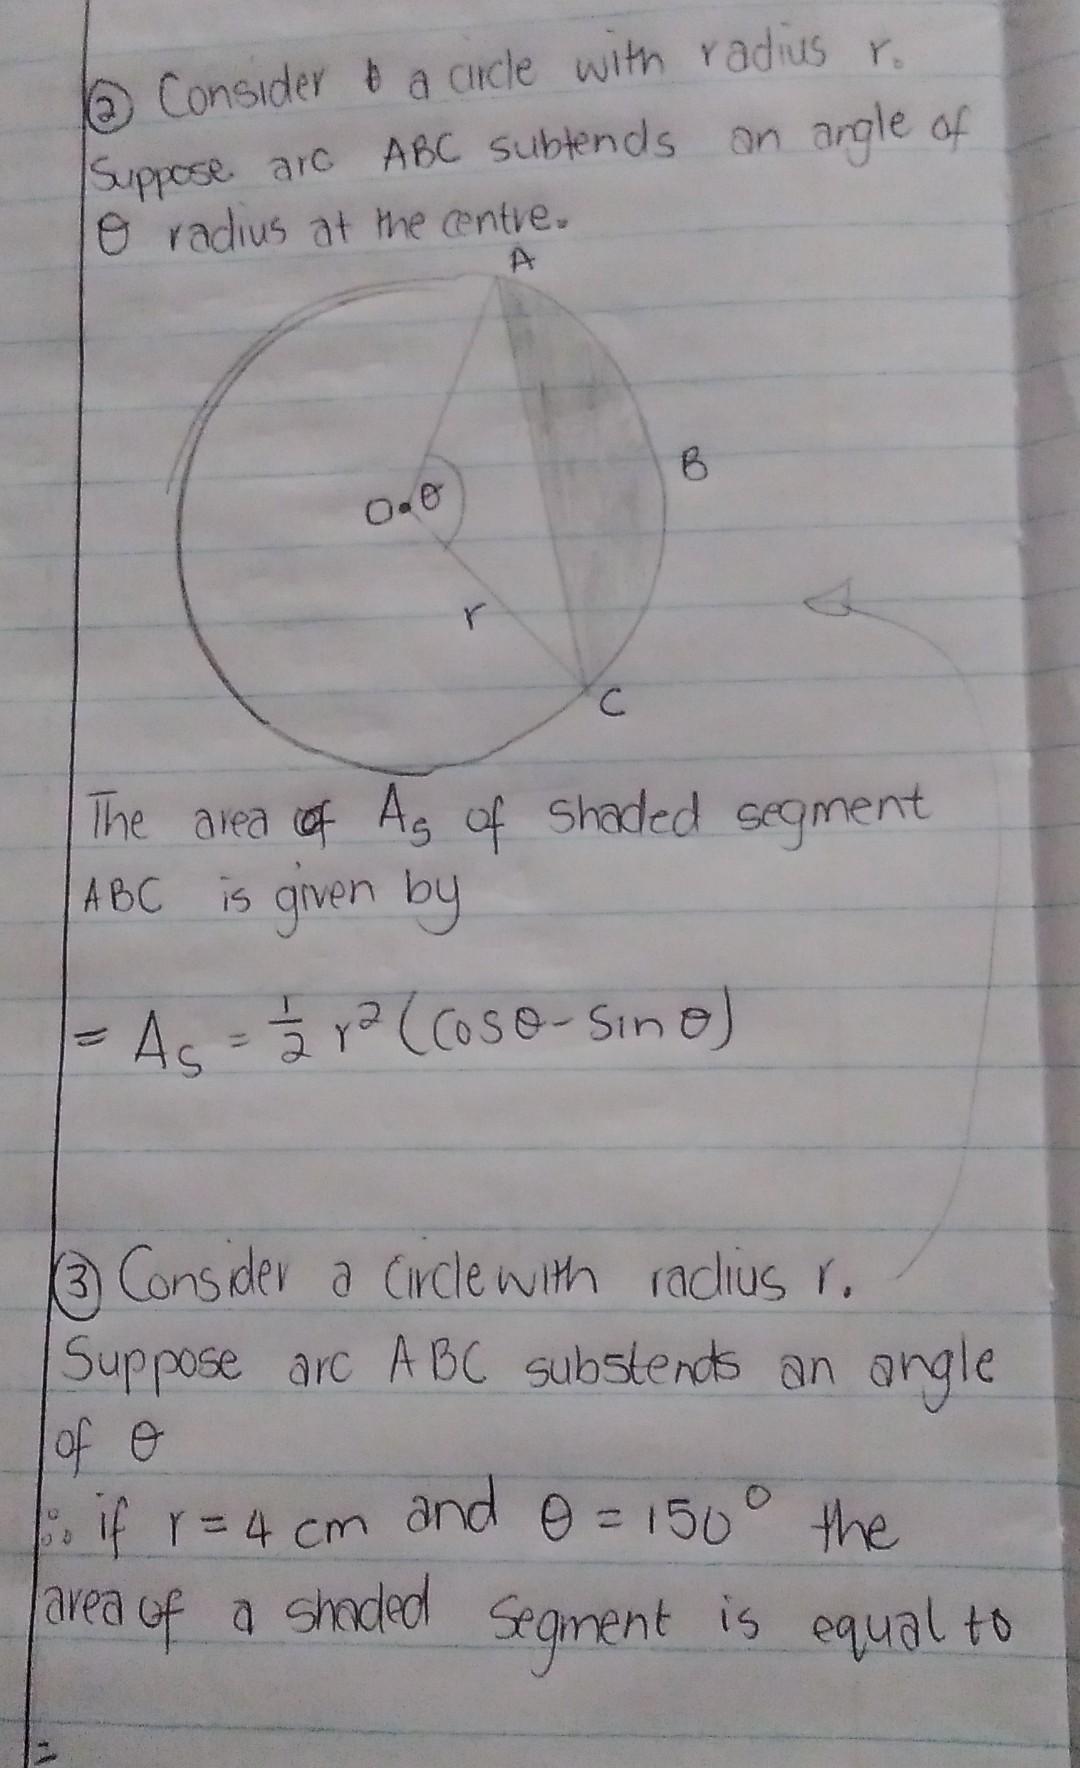 ② Consider a circle with radius r.
Suppose arc ABC subtends an angle of
θ radius at the centre.
A
B
O θ
r
C
The area of As of shaded segment
ABC is given by
= As = 1/2 r² (cosθ - sin θ)
③ Consider a circle with radius r.
Suppose arc ABC substends an angle
of θ
∴ if r = 4 cm and θ = 150° the
area of a shaded segment is equal to
=